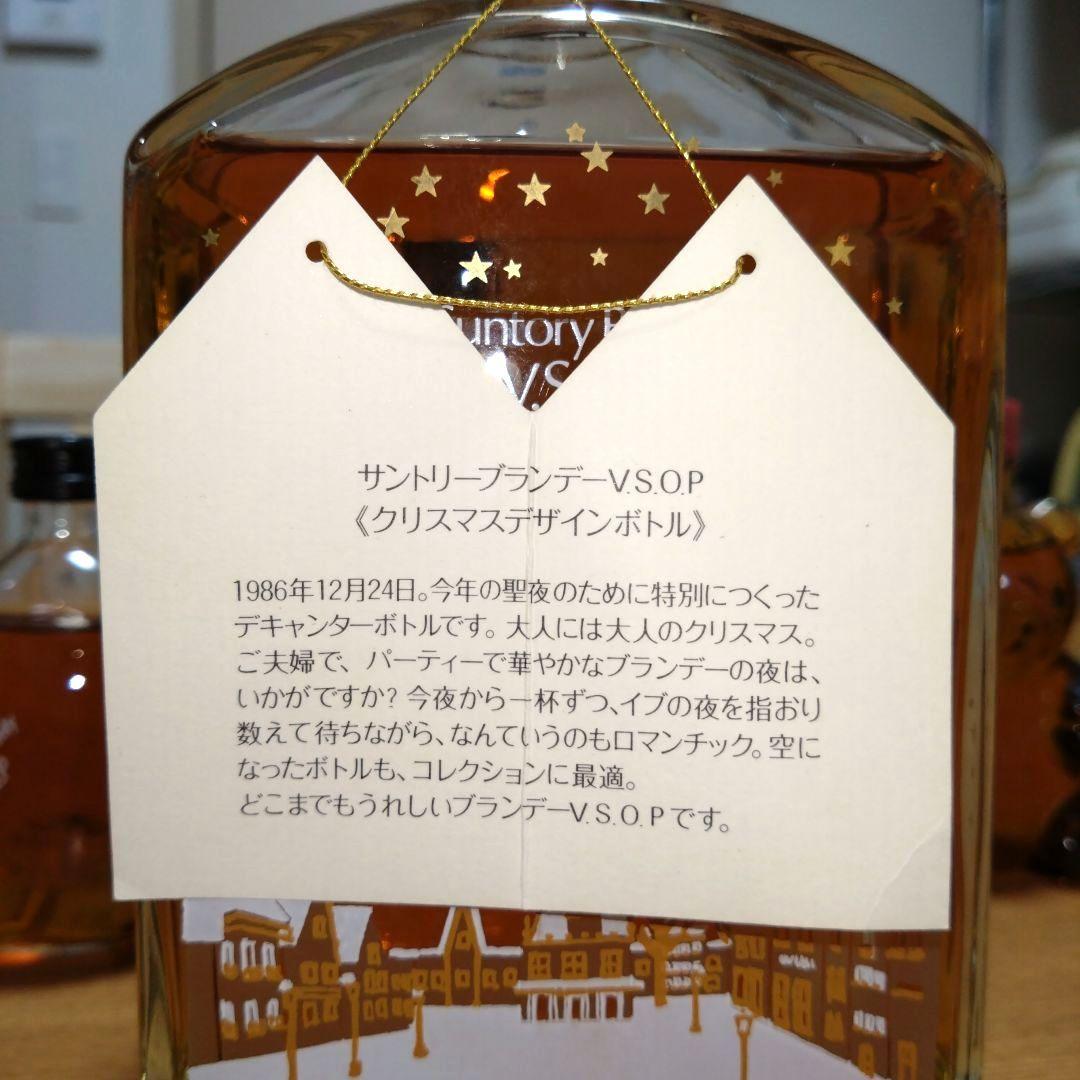 untory
V.S
サントリーブランデーV.S.O.P
《クリスマスデザインボトル》
1986年12月24日。今年の聖夜のために特別につくった
デキャンターボトルです。大人には大人のクリスマス。
ご夫婦で、パーティーで華やかなブランデーの夜は、
いかがですか?今夜から一杯ずつ、イブの夜を指おり
数えて待ちながら、なんていうのもロマンチック。空に
なったボトルも、コレクションに最適。
どこまでもうれしいブランデーV.S.O.Pです。